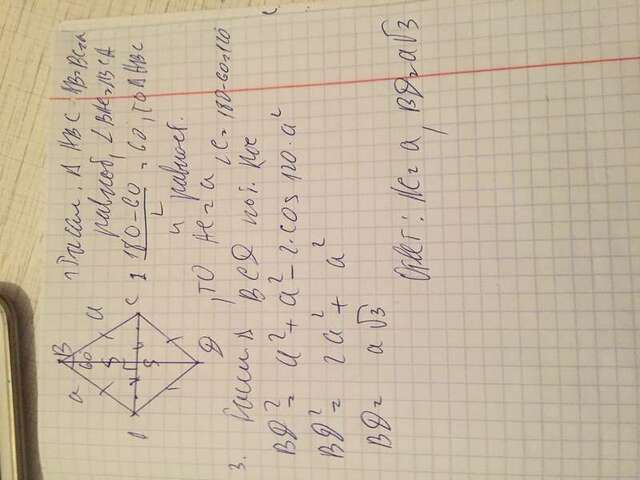 B
a
60
a
C
D
1 Рассм. Δ ABC AB=BC=a
равноб, ∠BAC=∠BCA
180-60
= 60, то ΔABC
2
и равност.
, то AC = a
∠C = 180-60=120
3. Рассм Δ BCD по т. кос
BD² = a² + a² - 2·cos 120·a²
BD² = 2a² + a²
BD = a√3
Ответ: AC = a, BD = a√3